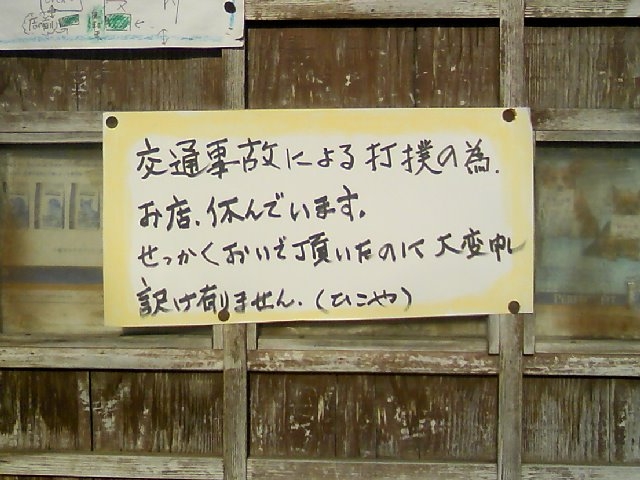 交通事故による打撲の為.
お店、休んでいます。
せっかくおいで頂いたのに大変申し
訳け有りません.(ひこや)